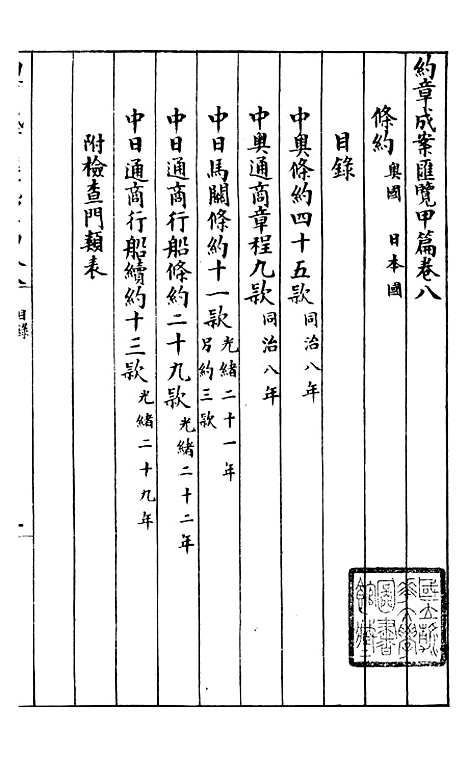 約章成案匯覽甲篇卷八
條約 奧國 日本國
目錄
中奧條約四十五款 同治八年
中奧通商章程九款 同治八年
中日馬關條約十一款 光緒二十一年 另約三款
中日通商行船條約二十九款 光緒二十二年
中日通商行船續約十三款 光緒二十九年
附檢查門類表
目錄
一
國立清華大學圖書館藏